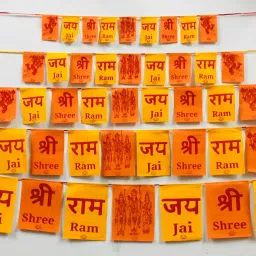 जय श्री राम जय श्री राम
Jai Shree Ram Jai Shree Ram
जय श्री राम जय श्री राम
Jai Shree Ram Jai Shree Ram
जय श्री राम जय श्री राम
Jai Shree Ram Jai Shree Ram
जय श्री राम जय श्री राम
Jai Shree Ram Jai Shree Ram
जय श्री राम जय श्री
Jai Shree Ram Jai Shree